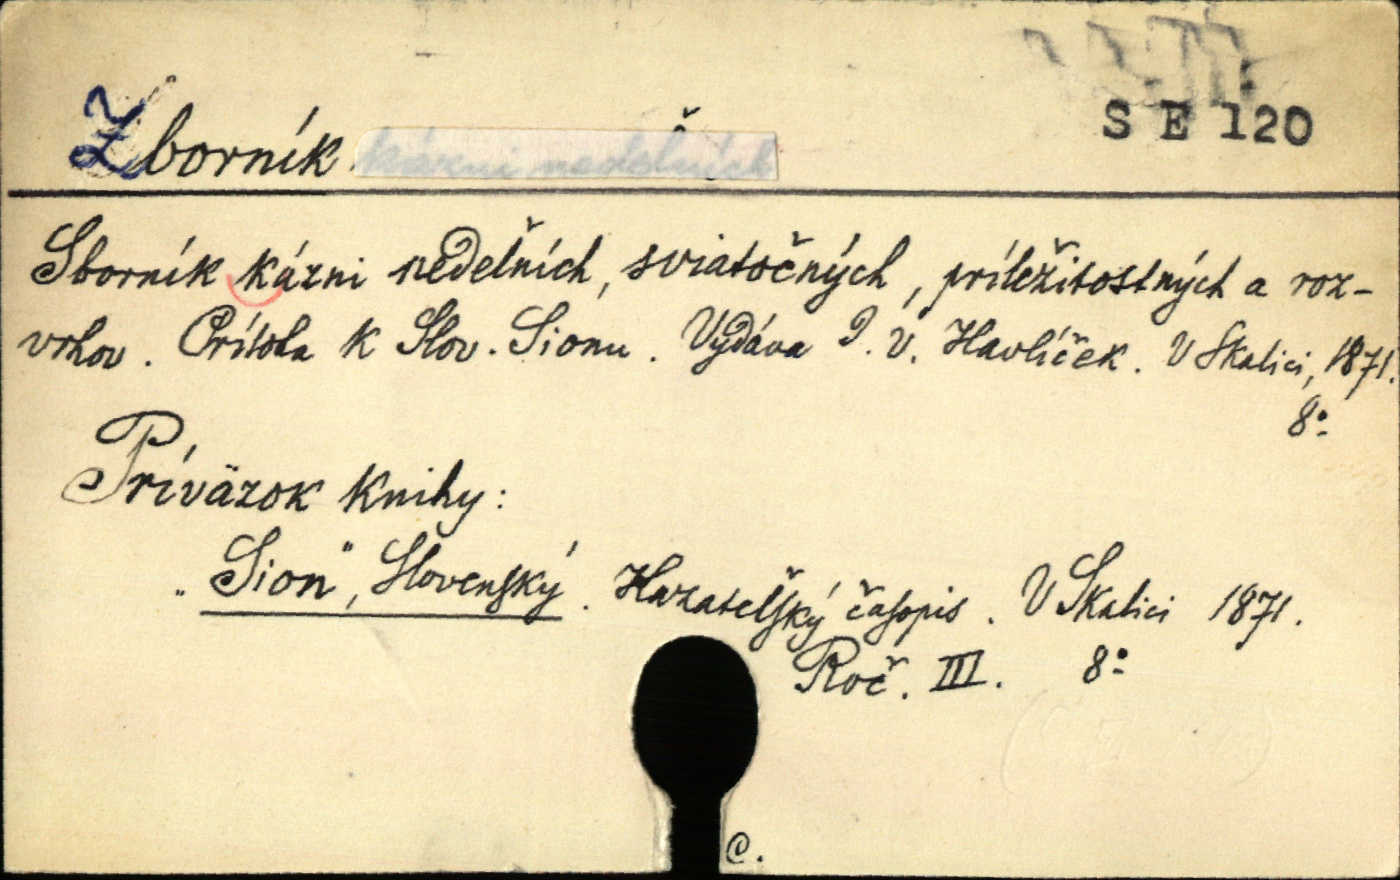 S E 120
Zborník kázni nedelních
Sborník kázni nedeľních, sviatočných, príležitostných a roz-
vrhov. Príloha k Slov. Sionu. Vydáva D. V. Havlíček. V Skalici, 1871.
8°
Príväzok knihy:
„Sion", Slovenský. Kazateľský časopis. V Skalici 1871.
Roč. III. 8°
C.